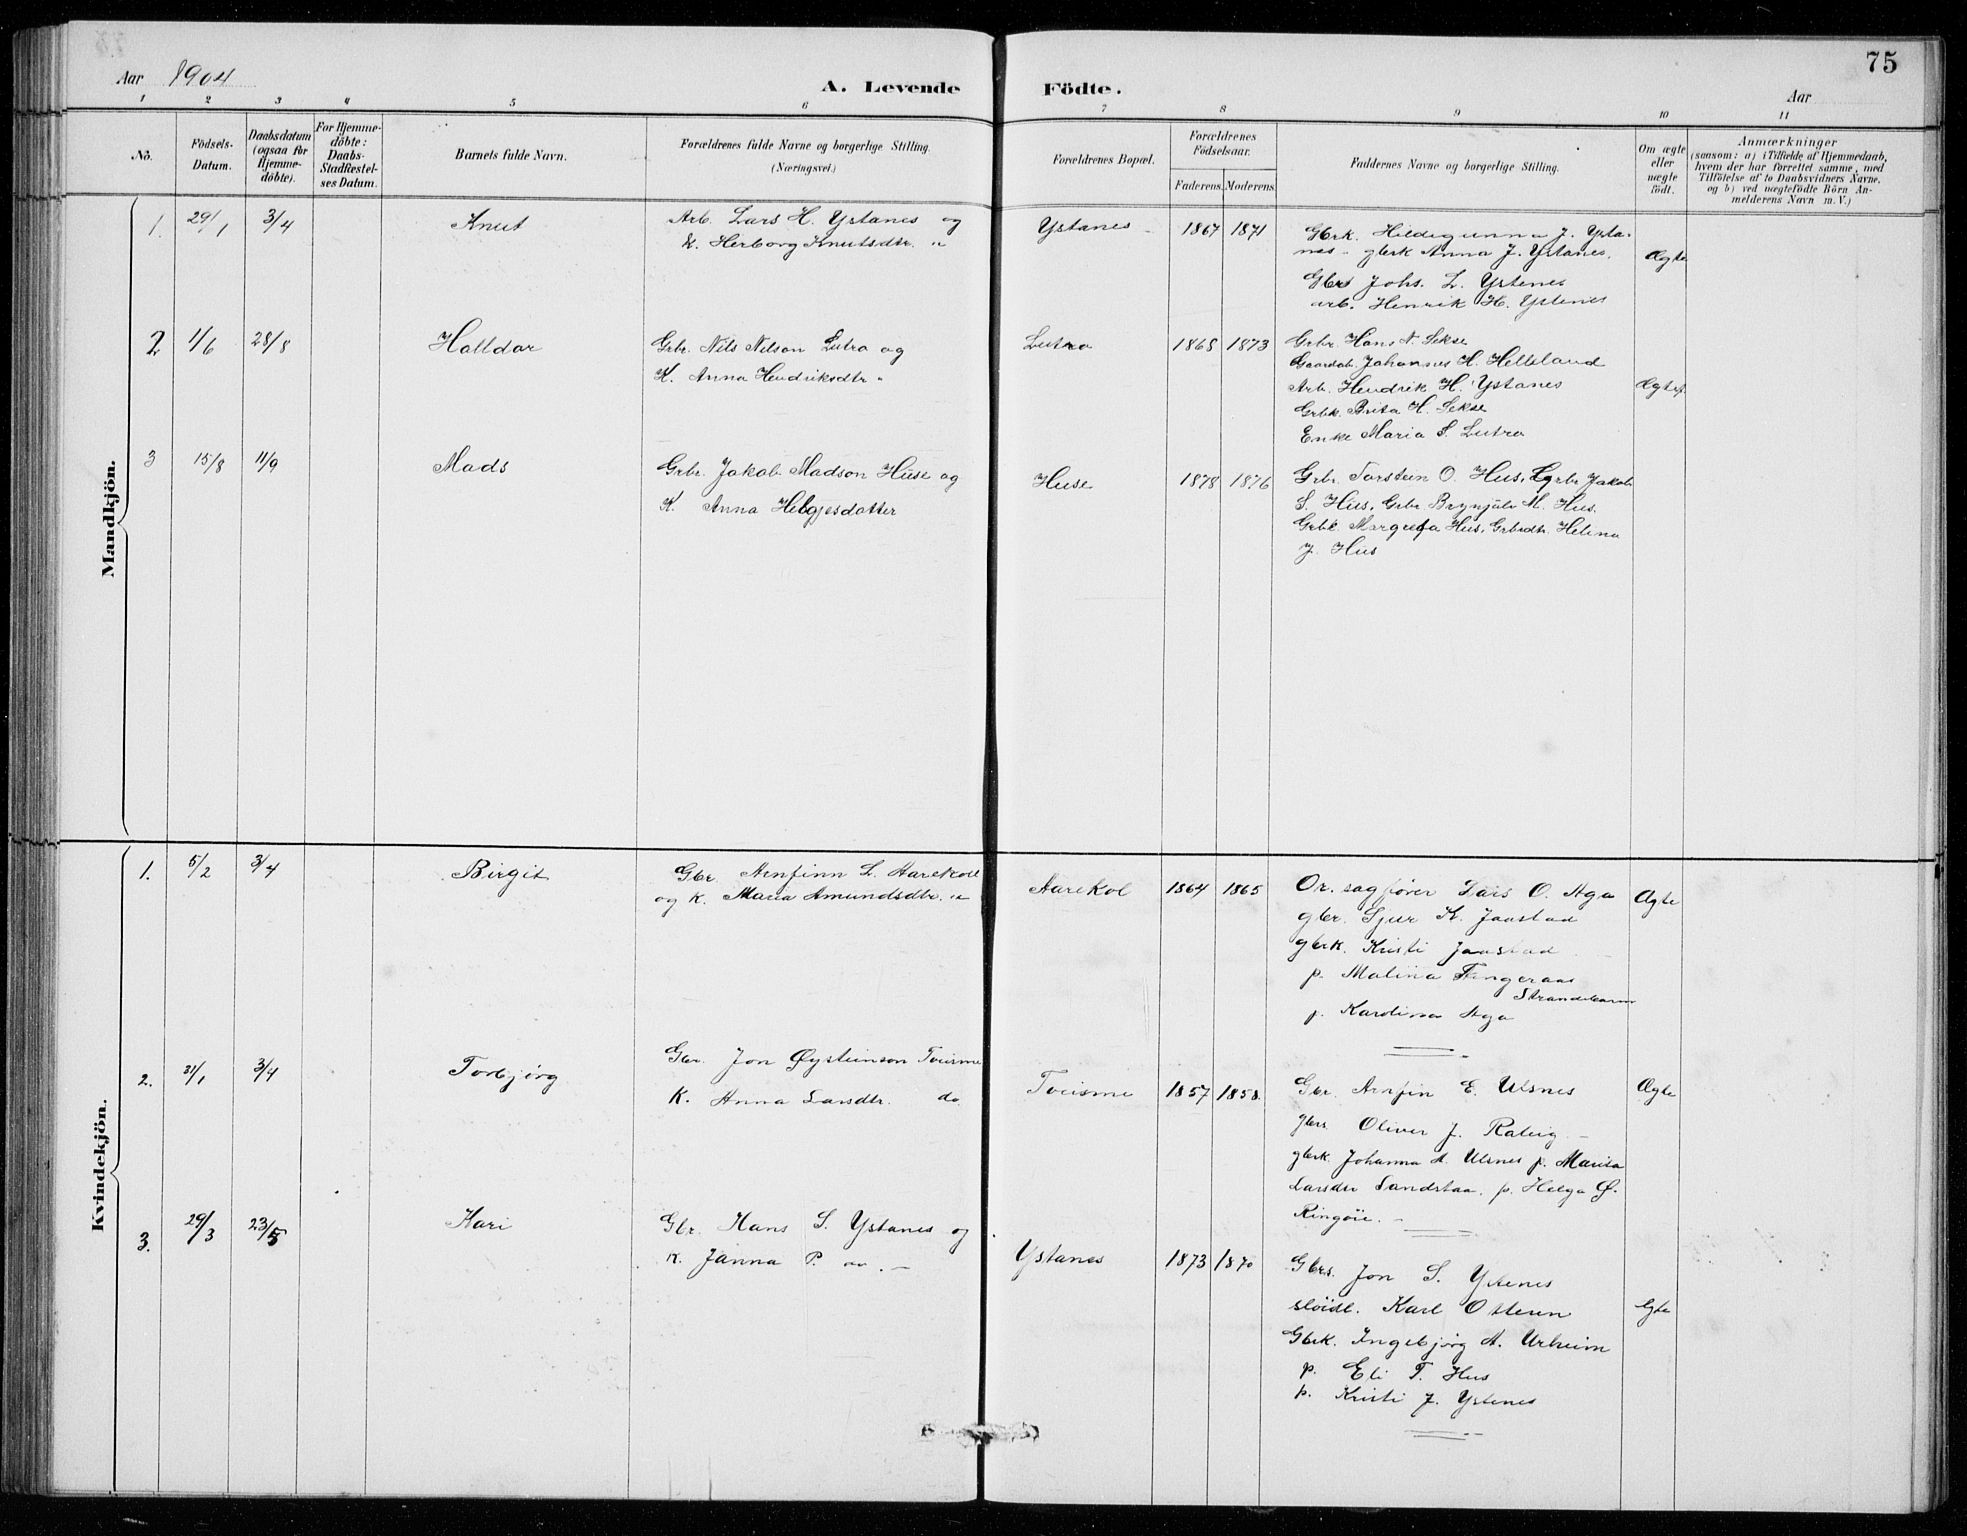 75
Aar 1904
A. Levende Födte.
Aar
1 2 3 4 5 6 7 8 9 10 11
No.
Födsels-
Datum.
Daabsdatum
(ogsaa for
Hjemme-
döbte).
For Hjemme-
döbte:
Daabs-
Stadfæstel-
ses Datum.
Barnets fulde Navn.
Forældrenes fulde Navne og borgerlige Stilling.
(Næringsvei.)
Forældrenes Bopæl.
Forældrenes
Födselsaar.
Faderens. Moderens.
Faddernes Navne og borgerlige Stilling.
Om ægte
eller
uægte
födt.
Anmærkninger
(saasom: a) i Tilfælde af Hjemmedaab,
hvem der har forrettet samme, med
Tilföielse af to Daabsvidners Navne,
og b) ved uægtefödte Börn An-
melderens Navn m. V.)
Mandkjön.
1. 29/1 3/4 Knut
Arb. Lars H. Ystanes og
K. Herborg Knutsdtr. "
Ystanes 1867 1871
Gbrk. Hildegunna J. Ysta-
nes - gbrk Anna J. Ystanes.
Gbrs Johs. L. Ystenes
arb. Henrik H. Ystenes
Ægte
2 1/6 28/8 Halldor
Grbr. Nils Nilson Lutro og
K. Anna Hendriksdtr "
Lutro 1868 1873
Grbr Hans N. Sekse
Gaardab. Johannes H. Helleland
Arb. Hendrik H. Ystanes
Grbk. Brita H. Sekse
Enke Maria S. Lutro
3 15/8 11/9 Mads
Grbr. Jakob Madson Huse og
K. Anna Helgjesdatter
Huse 1878 1876
Grbr. Torstein O. Hus, Grbr Jakob
S. Hus, Grbr Brynjulv M. Hus.
Grbk. Margreta Hus, Grbrdtr. Helina
J. Hus
Kvindekjön.
1. 5/2 3/4 Birgit
Gbr. Arnfinn L. Aarekoll
og K. Maria Amundsdtr. "
Aarekol 1864 1865
Or. sagförer Lars O. Aga
gbr. Sjur K. Jaastad
gbrk. Kristi Jaastad
p. Malina Tangeraas
Strandebarm
p. Karolina Aga
Ægte
2. 31/1 3/4 Torbjörg
Gbr. Jon Øysteinson Tveisme
K. Anna Larsdtr. do.
Tveisme 1857 1858.
Gbr. Arnfin E. Ulsnes
gbrs. Oliver J.
gbrk. Johanna A. Ulsnes p. Marita
Larsdtr Sandstaa, p. Helga Ø.
Ringöie. -
Ægte
3. 29/3 23/5 Kari
Gbr. Hans S. Ystanes og
K. Janna P.
Ystanes 1873 1870
Gbrs. Jon S. Ystenes
slöidl. Karl Ottesen
Gbrk. Ingebjörg A. Urheim
p. Eli T. Hus
p. Kristi J. Ystenes
Ægte